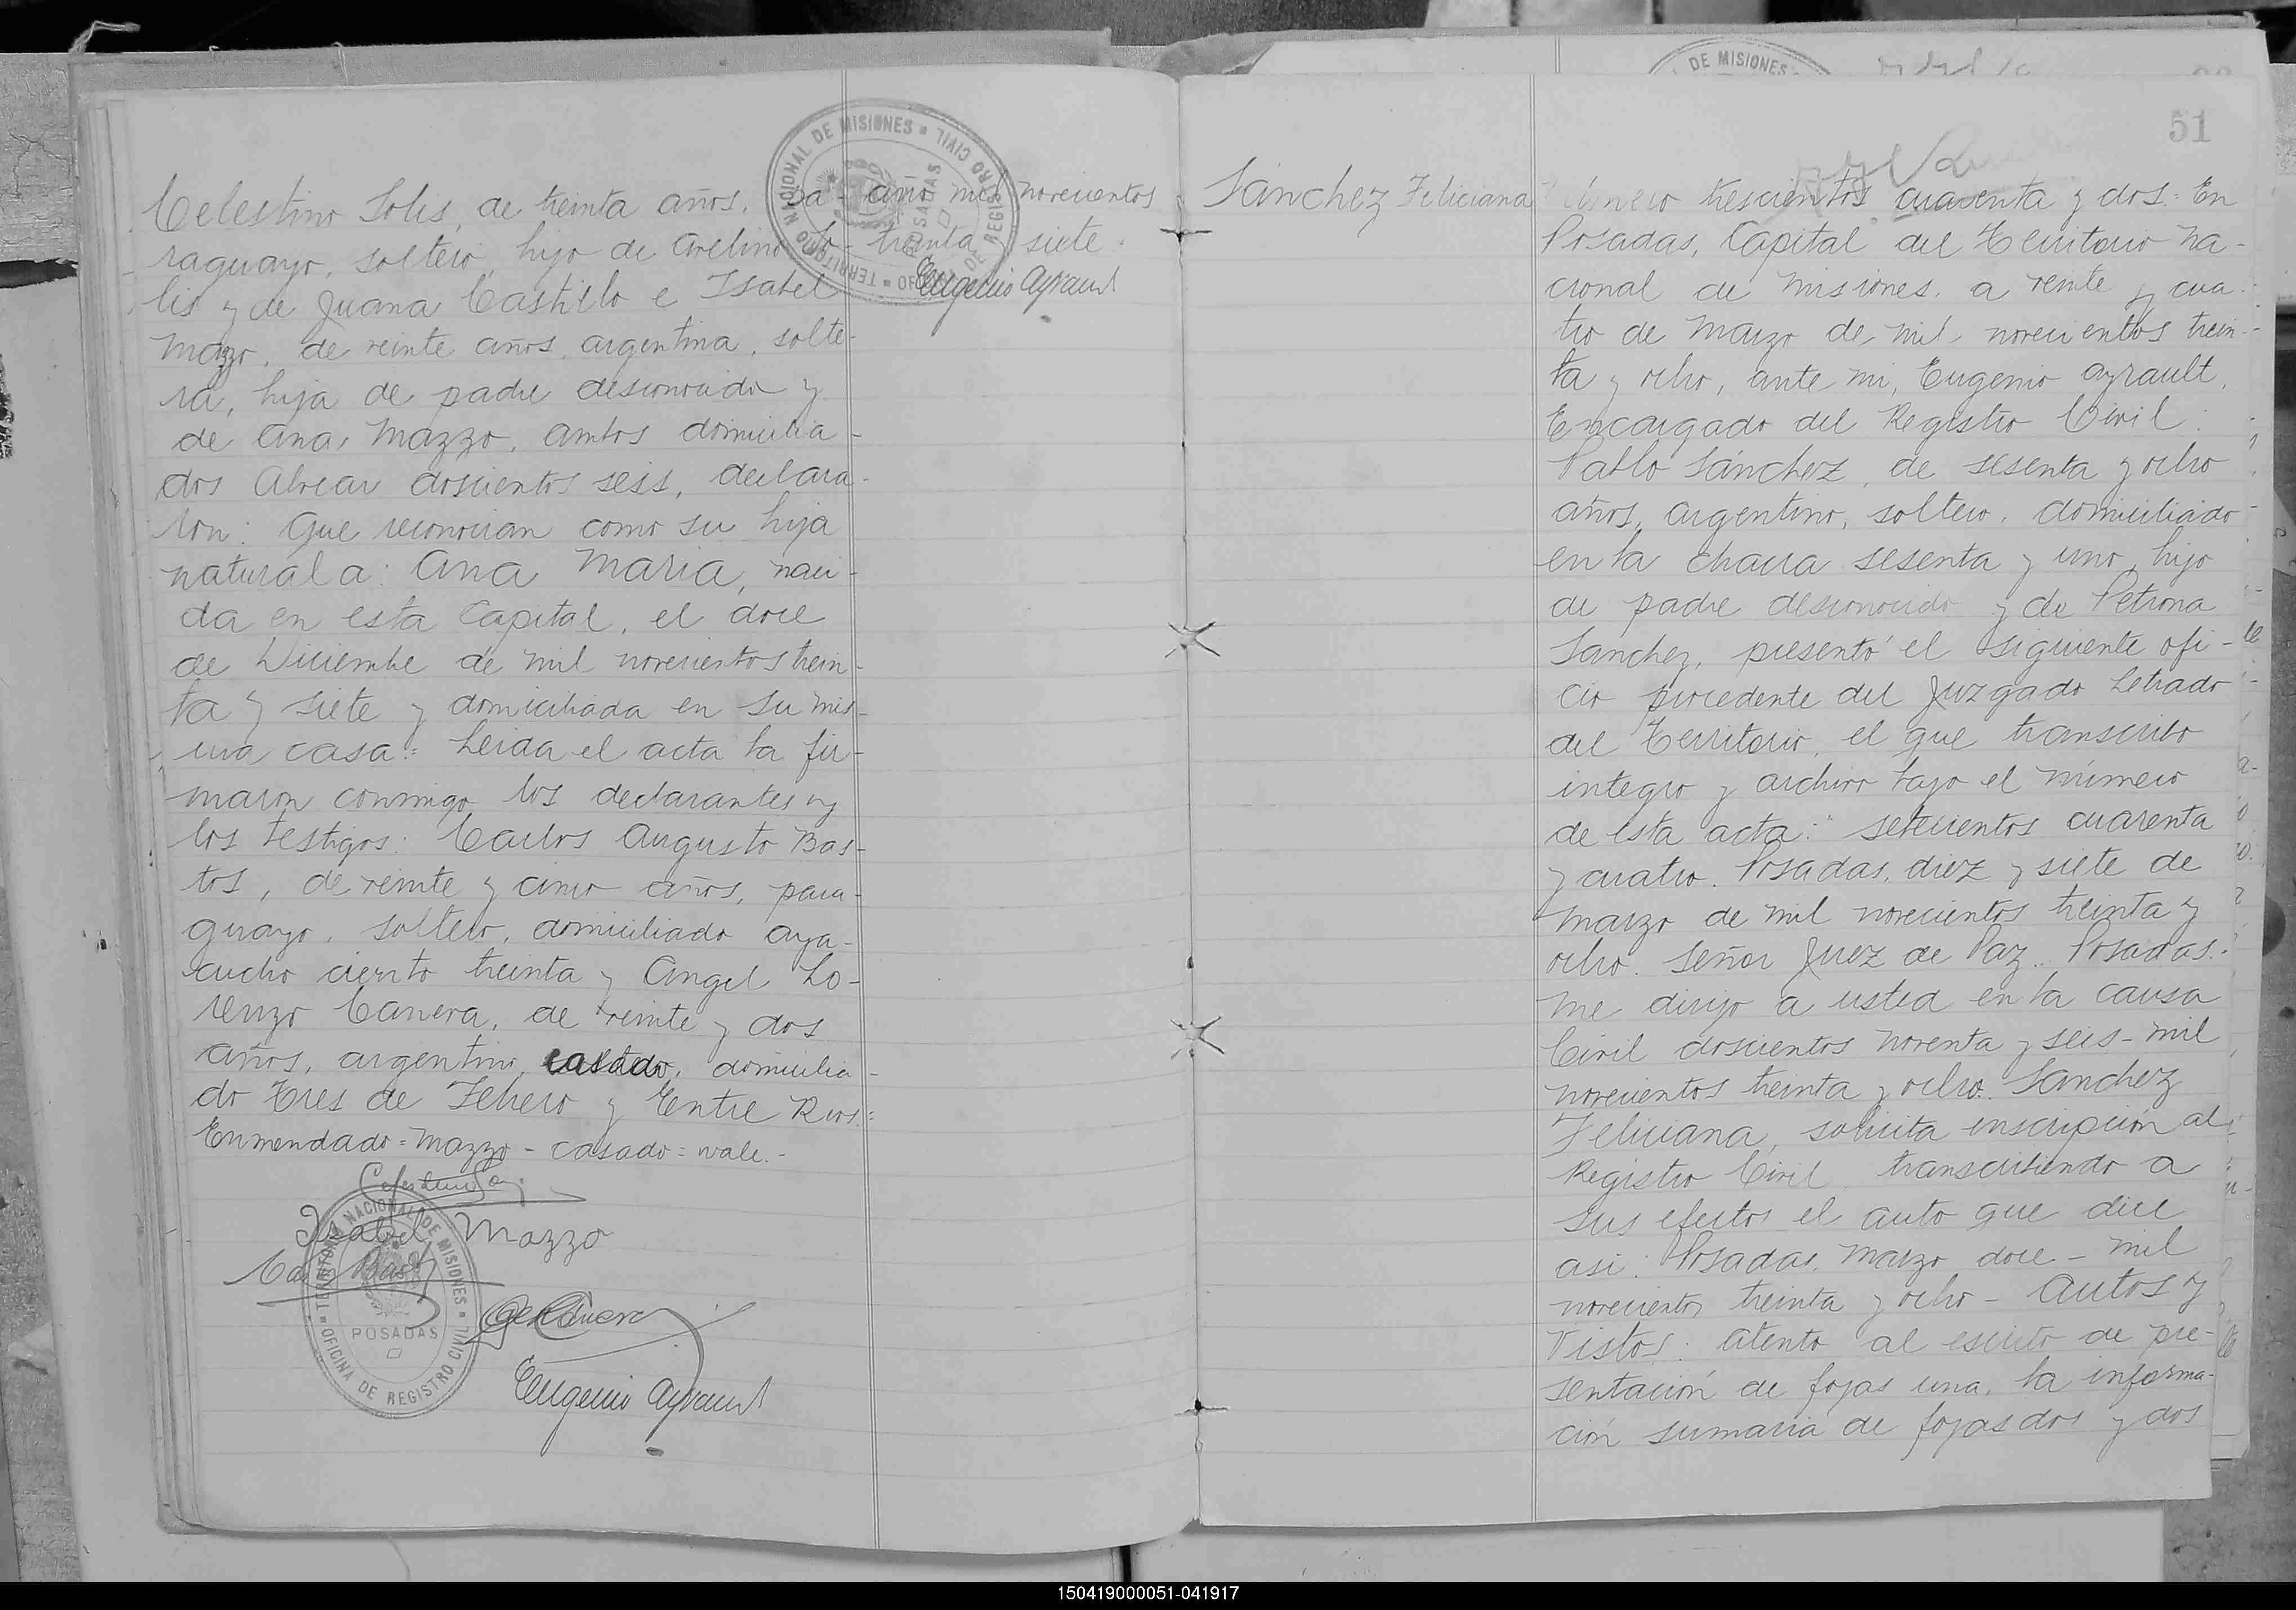 Celestino Solis, de treinta años, pa-
raguayo, soltero, hijo de Avelino So-
lis y de Juana Castillo e Isabel
Mazzo, de veinte años, argentina, solte-
ra, hija de padre desconocido y
de Ana Mazzo, ambos domicilia-
dos Alvear doscientos seis, declara-
ron: Que reconocian como su hija
natural a: Ana Maria, naci-
da en esta Capital, el doce
de Diciembre de mil novecientos trein-
ta y siete y domiciliada en su mis-
ma casa = Leida el acta la fir-
maron conmigo los declarantes y
los testigos: Carlos Augusto Bas-
tos, de veinte y cinco años, para-
guayo, soltero, domiciliado Aya-
cucho ciento treinta y Angel Lo-
renzo Canera, de veinte y dos
años, argentino, casado, domicilia-
do Tres de Febrero y Entre Rios.=
Enmendado = Mazzo - casado = vale.-
Isabel Mazzo
Eugenio Ayrault
TERRITORIO NACIONAL DE MISIONES
OFICINA DE REGISTRO CIVIL
POSADAS
año mil novecientos
treinta y siete.
Eugenio Ayrault
TERRITORIO NACIONAL DE MISIONES
OFICINA DE REGISTRO CIVIL
POSADAS
DE MISIONES
51
Sánchez Feliciana
Número trescientos cuarenta y dos.= En
Posadas, Capital del Territorio Na-
cional de Misiones, a veinte y cua-
tro de Marzo de mil novecientos trein-
ta y ocho, ante mi, Eugenio Ayrault,
Encargado del Registro Civil:
Pablo Sánchez, de sesenta y ocho
años, argentino, soltero, domiciliado
en la chacra sesenta y uno, hijo
de padre desconocido y de Petrona
Sanchez, presentó el siguiente ofi-
cio procedente del Juzgado Letrado
del Territorio, el que transcribo
integro y archivo bajo el número
de esta acta: "Setecientos cuarenta
y cuatro. Posadas, diez y siete de
Marzo de mil novecientos treinta y
ocho. Señor Juez de Paz. Posadas.-
Me dirijo a usted en la causa
Civil doscientos noventa y seis - mil
novecientos treinta y ocho. Sanchez
Feliciana, solicita inscripción al
Registro Civil, transcribiendo a
sus efectos el auto que dice
asi: Posadas, Marzo doce - mil
novecientos treinta y ocho - Autos y
Vistos: Atento al escrito de pre-
sentación de fojas una, la informa-
ción sumaria de fojas dos y dos
150419000051-041917